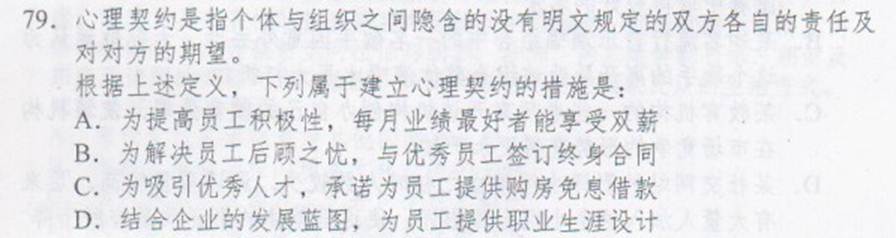 79. 心理契约是指个体与组织之间隐含的没有明文规定的双方各自的责任及
对对方的期望。
根据上述定义，下列属于建立心理契约的措施是：
A. 为提高员工积极性，每月业绩最好者能享受双薪
B. 为解决员工后顾之忧，与优秀员工签订终身合同
C. 为吸引优秀人才，承诺为员工提供购房免息借款
D. 结合企业的发展蓝图，为员工提供职业生涯设计